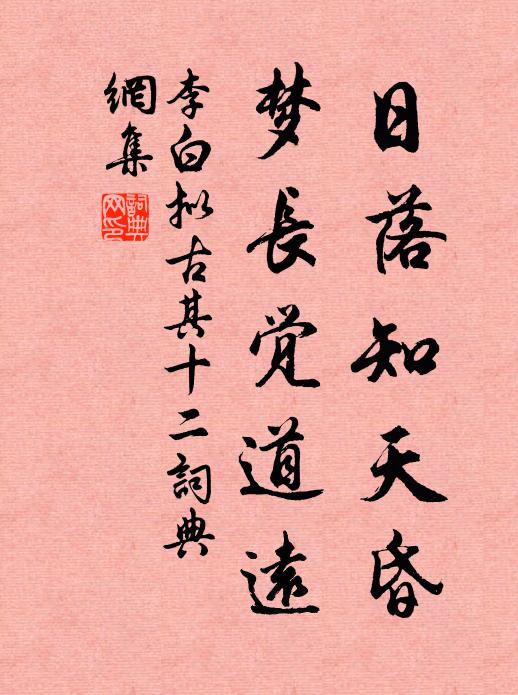 日落知天昏
梦长觉道远
李白拟古其十二詞典
網集
詞典网印